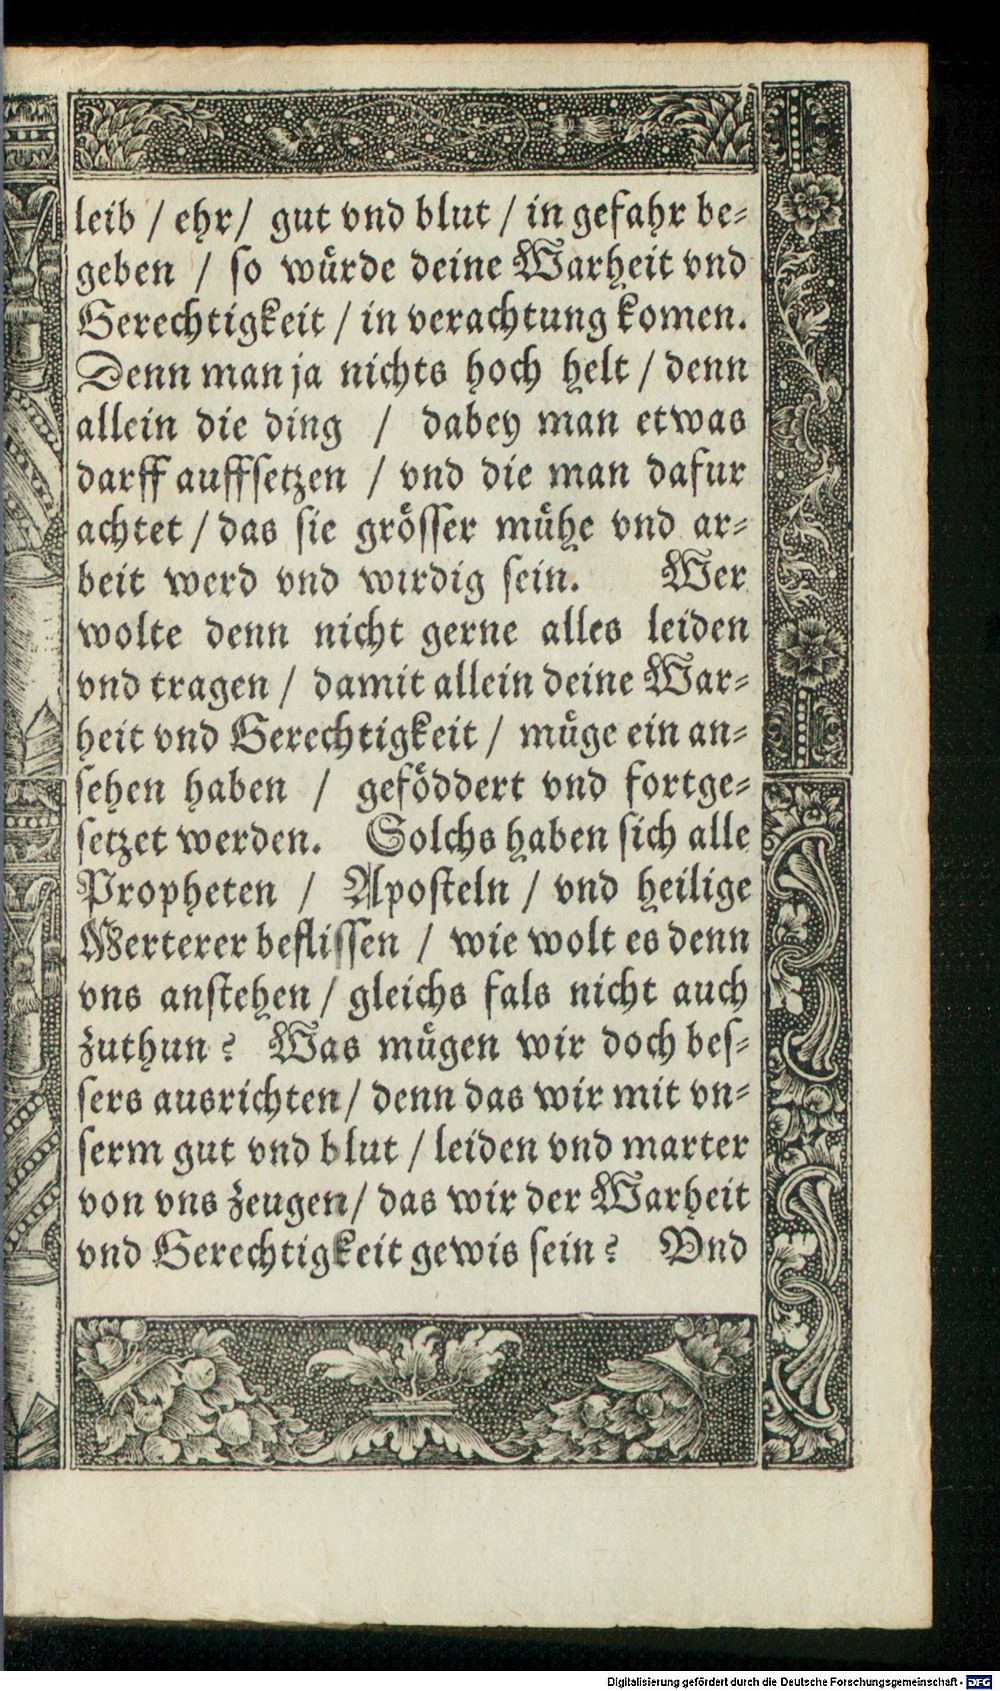 leib / ehr / gut vnd blut / in gefahr be⸗
geben / so würde deine Warheit vnd
Gerechtigkeit / in verachtung komen.
Denn man ja nichts hoch helt / denn
allein die ding / dabey man etwas
darff auffsetzen / vnd die man dafur
achtet / das sie grösser mühe vnd ar⸗
beit werd vnd wirdig sein. Wer
wolte denn nicht gerne alles leiden
vnd tragen / damit allein deine War⸗
heit vnd Gerechtigkeit / müge ein an⸗
sehen haben / geföddert vnd fortge⸗
setzet werden. Solchs haben sich alle
Propheten / Aposteln / vnd heilige
Merterer beflissen / wie wolt es denn
vns anstehen / gleichs fals nicht auch
zuthun? Was mügen wir doch bes⸗
sers ausrichten / denn das wir mit vn⸗
serm gut vnd blut / leiden vnd marter
von vns zeugen / das wir der Warheit
vnd Gerechtigkeit gewis sein? Vnd
Digitalisierung gefördert durch die Deutsche Forschungsgemeinschaft - DFG